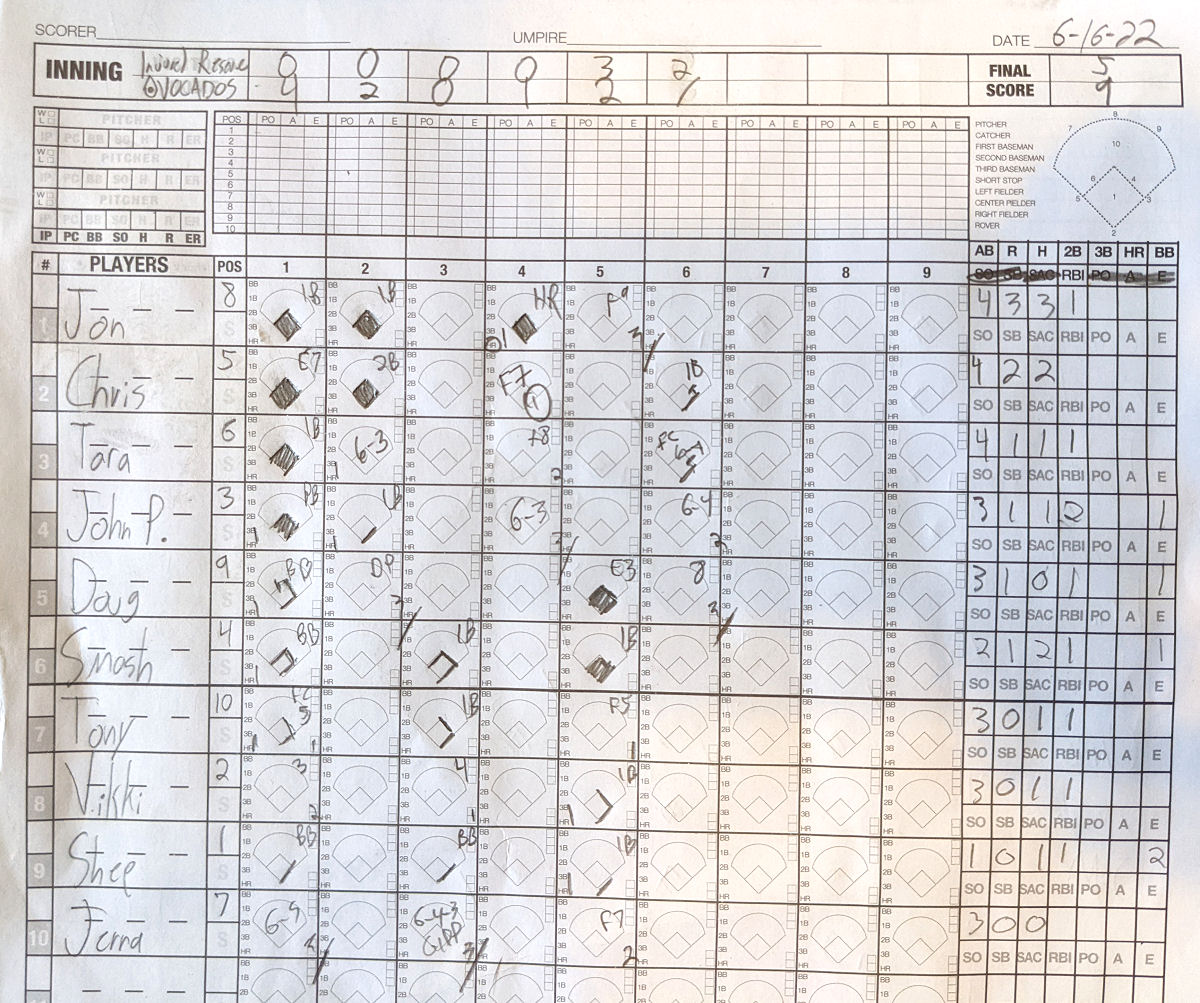 SCORER UMPIRE DATE 6-16-22
INNING Injured Reserve 0 0 0 0 3 2 FINAL SCORE 5
AVOCADOS 4 2 0 2 9
W L PITCHER POS PO A E PO A E PO A E PO A E PO A E PO A E PO A E PO A E PO A E
IP PC BB SO H R ER
W L PITCHER
IP PC BB SO H R ER
W L PITCHER
IP PC BB SO H R ER
IP PC BB SO H R ER
1
2
3
4
5
6
7
8
9
10
PITCHER
CATCHER
FIRST BASEMAN
SECOND BASEMAN
THIRD BASEMAN
SHORT STOP
LEFT FIELDER
CENTER PIELDER
RIGHT FIELDER
ROVER
8
7 9
10
6 4
5 1 3
2
# PLAYERS POS 1 2 3 4 5 6 7 8 9 AB R H 2B 3B HR BB
RBI
1 Jon 8 1B 1B HR F9 4 3 3 1
SO SB SAC RBI PO A E
2 Chris 5 E7 2B F7 1 1B 4 2 2
SO SB SAC RBI PO A E
3 Tara 6 1B 6-3 F8 2 FC 4 1 1 1
SO SB SAC RBI PO A E
4 John P. 3 BB 1B 6-3 6-4 2 3 1 1 2 1
SO SB SAC RBI PO A E
5 Doug 9 BB DP 3 E3 8 3 3 1 0 1 1
SO SB SAC RBI PO A E
6 Smash 4 BB 1B 1B 2 1 2 1 1
SO SB SAC RBI PO A E
7 Tony 10 FC 5 1B F5 1 3 0 1 1
SO SB SAC RBI PO A E
8 Vikki 2 3 2 4 1 1B 3 0 1 1
SO SB SAC RBI PO A E
9 Shee 1 BB BB 1B 1 0 1 1 2
SO SB SAC RBI PO A E
10 Jenna 7 6-4-3 GIDP 3 F7 2 3 0 0
SO SB SAC RBI PO A E